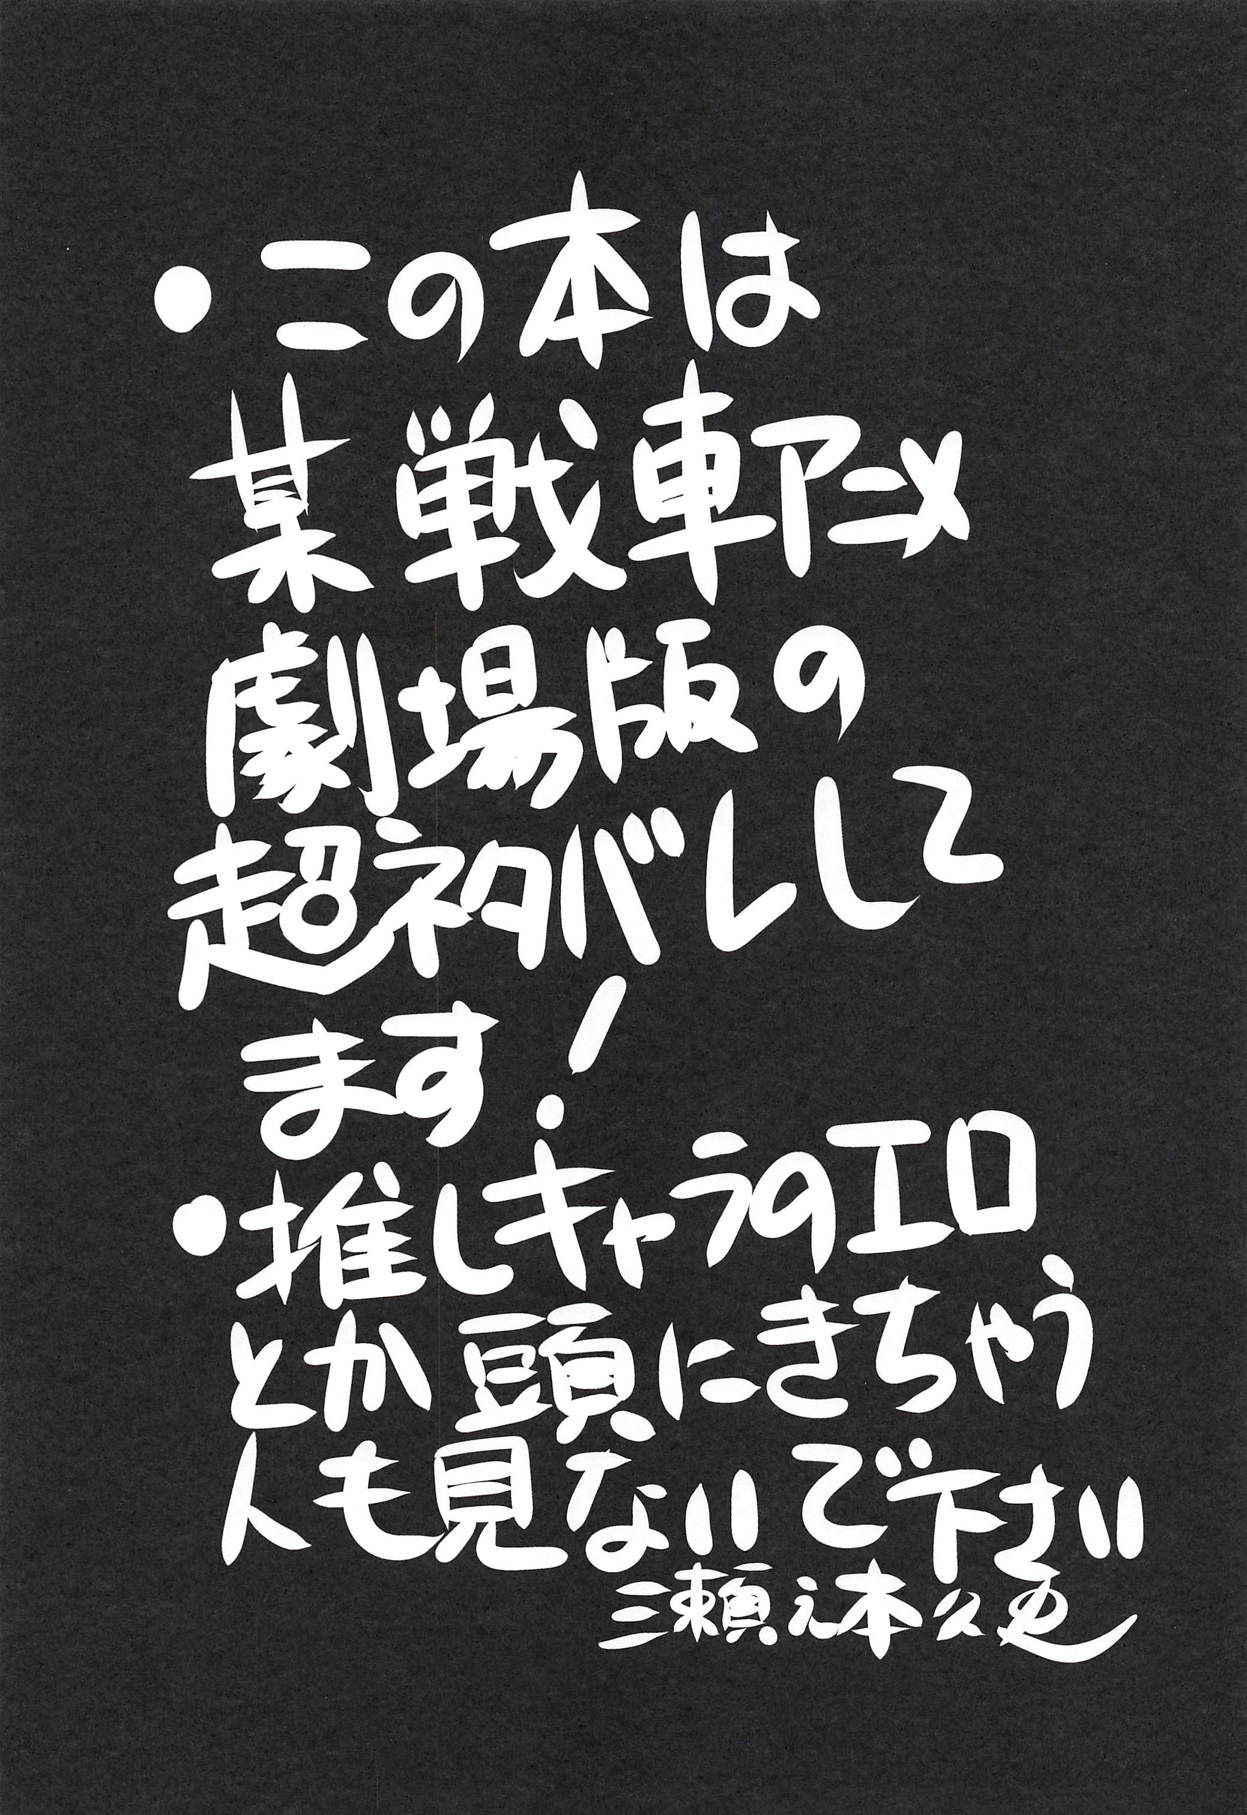 ・この本は
某戦車アニメ
劇場版の
超ネタバレして
ます!
・推しキャラのエロ
とか頭にきちゃう
人も見ないで下さい
瀬之本久史